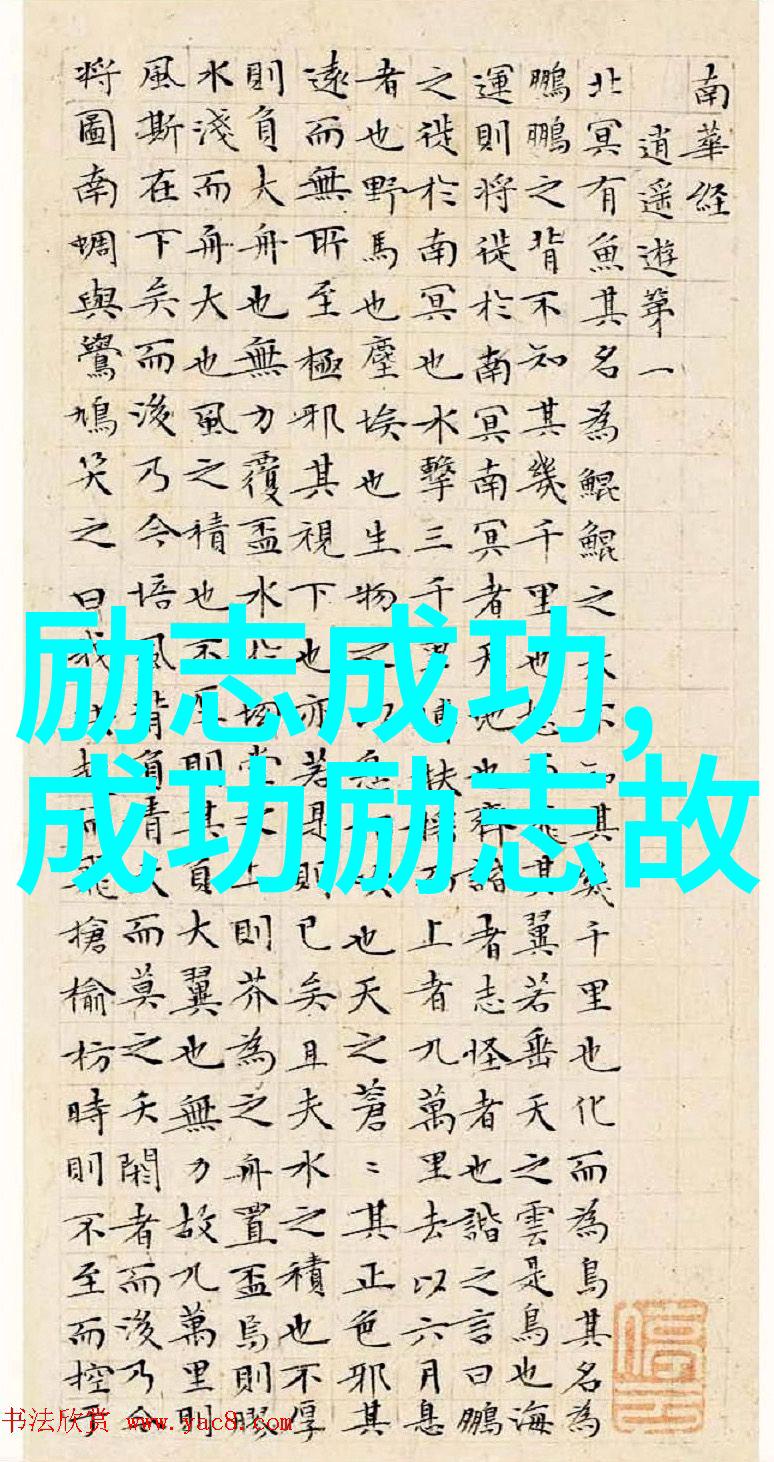 南華経
逍遥遊第一
北冥有魚其名為鯤鯤之大不知其幾千里也化而為鳥其名為
鵬鵬之背不知其幾千里也怒而飛其翼若垂天之雲是鳥也海
運則将徙於南冥南冥者天池也齊諧者志怪者也諧之言曰鵬
之徙於南冥也水擊三千里扶搖而上者九萬里去以六月息
者也野馬也塵埃也生物之以息吹也天之蒼〻其正色邪其
遠而無所至極邪其視下也亦若是則已矣且夫水之積也不厚
則負大舟也無力覆盃水於坳堂之上則芥為之舟置盃焉則膠
水淺而舟大也風之積也不厚則其負大翼也無力故九萬里則
風斯在下矣而後乃今培風背負青天而莫之夭閼者而後乃今
将圖南蜩與鷽鳩笑之曰我起而飛搶榆枋時則不至而控於
励志成功,
成功励志故
书法欣赏 www.yac8.com